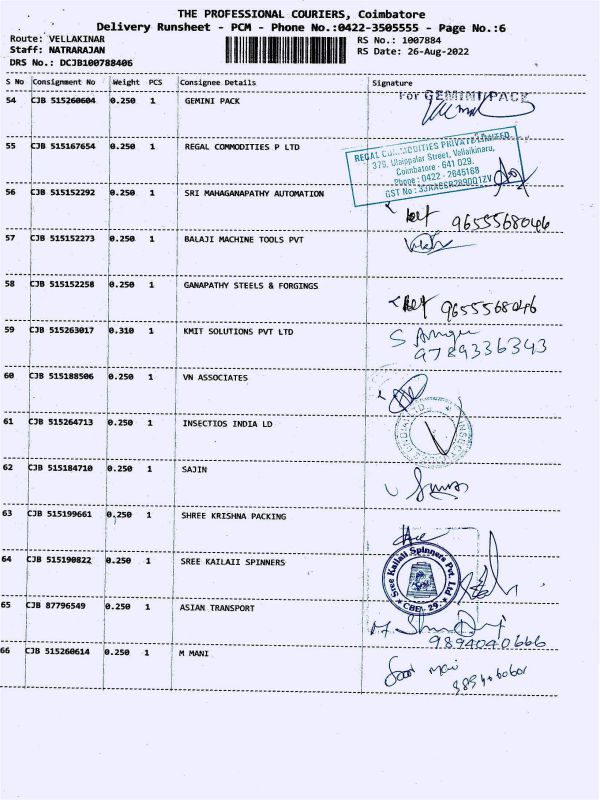 THE PROFESSIONAL COURIERS, Coimbatore
Delivery Runsheet - PCM - Phone No.:0422-3505555 - Page No.:6
Route: VELLAKINAR RS No.: 1007884
Staff: NATRARAJAN RS Date: 26-Aug-2022
DRS No.: DCJB100788406
S No Consignment No Weight PCS Consignee Details Signature
54 CJB 515260604 0.250 1 GEMINI PACK
For GEMINI PACK
55 CJB 515167654 0.250 1 REGAL COMMODITIES P LTD
REGAL COMMODITIES PRIVATE LIMITED
375, Ulaippalar Street, Vellaikinaru,
Coimbatore - 641 029.
Phone : 0422 - 2645168
56 CJB 515152292 0.250 1 SRI MAHAGANAPATHY AUTOMATION
9655568046
57 CJB 515152273 0.250 1 BALAJI MACHINE TOOLS PVT
58 CJB 515152258 0.250 1 GANAPATHY STEELS & FORGINGS
9655568046
59 CJB 515263017 0.310 1 KMIT SOLUTIONS PVT LTD
9789336343
60 CJB 515188506 0.250 1 VN ASSOCIATES
61 CJB 515264713 0.250 1 INSECTIOS INDIA LD
62 CJB 515184710 0.250 1 SAJIN
63 CJB 515199661 0.250 1 SHREE KRISHNA PACKING
64 CJB 515190822 0.250 1 SREE KAILAII SPINNERS
Sree Kailaii Spinners Pvt. Ltd
CBE - 29.
65 CJB 87796549 0.250 1 ASIAN TRANSPORT
9894040666
66 CJB 515260614 0.250 1 M MANI